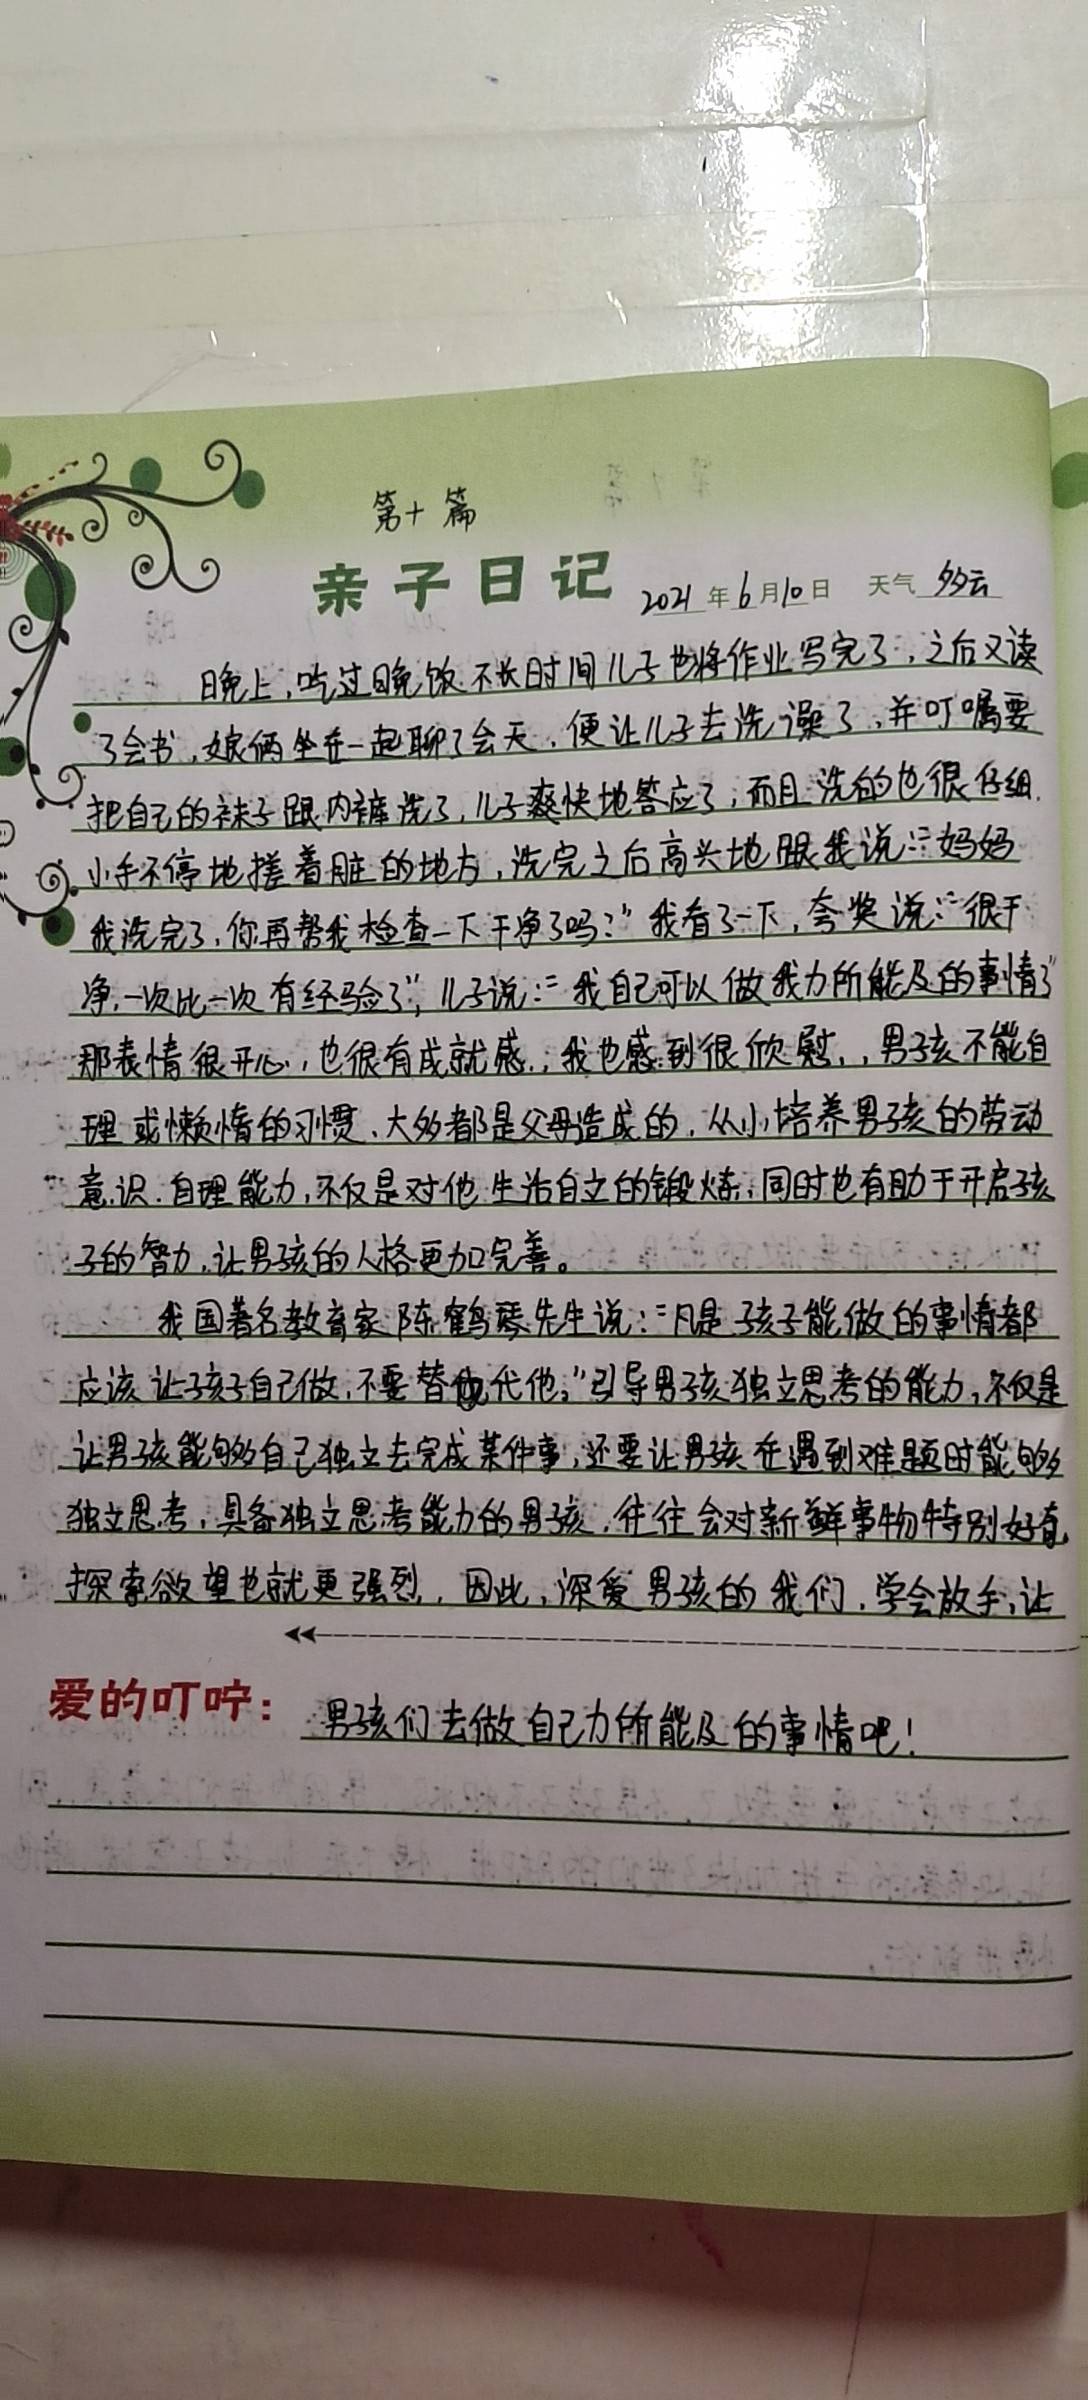 第十篇
亲子日记 2021年6月10日 天气 多云
晚上，吃过晚饭不长时间儿子也将作业写完了，之后又读
了会书，娘俩坐在一起聊了会天，便让儿子去洗澡了，并叮嘱要
把自己的袜子跟内裤洗了，儿子爽快地答应了，而且洗的也很仔细，
小手不停地搓着脏的地方，洗完之后高兴地跟我说：“妈妈
我洗完了，你再帮我检查一下干净了吗？”我看了一下，夸奖说：“很干
净，一次比一次有经验了”，儿子说：“我自己可以做我力所能及的事情了”
那表情很开心，也很有成就感，我也感到很欣慰，男孩不能自
理或懒惰的习惯，大多都是父母造成的，从小培养男孩的劳动
意识．自理能力，不仅是对他生活自立的锻炼，同时也有助于开启孩
子的智力，让男孩的人格更加完善。
我国著名教育家陈鹤琴先生说：“凡是孩子能做的事情都
应该让孩子自己做，不要替代他。”引导男孩独立思考的能力，不仅是
让男孩能够自己独立去完成某件事，还要让男孩在遇到难题时能够
独立思考，具备独立思考能力的男孩，往往会对新鲜事物特别好奇
探索欲望也就更强烈，因此，深爱男孩的我们，学会放手，让
爱的叮咛： 男孩们去做自己力所能及的事情吧！